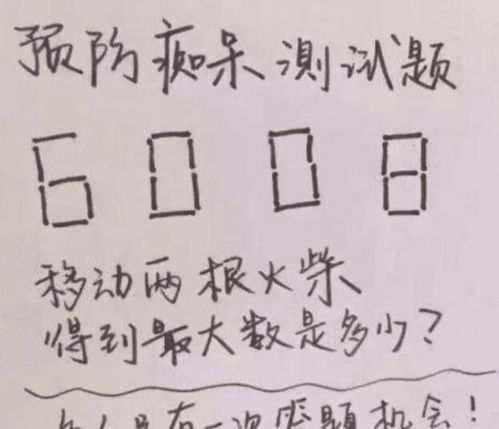 预防痴呆测试题
6008
移动两根火柴
得到最大数是多少?
有一次答题机会!